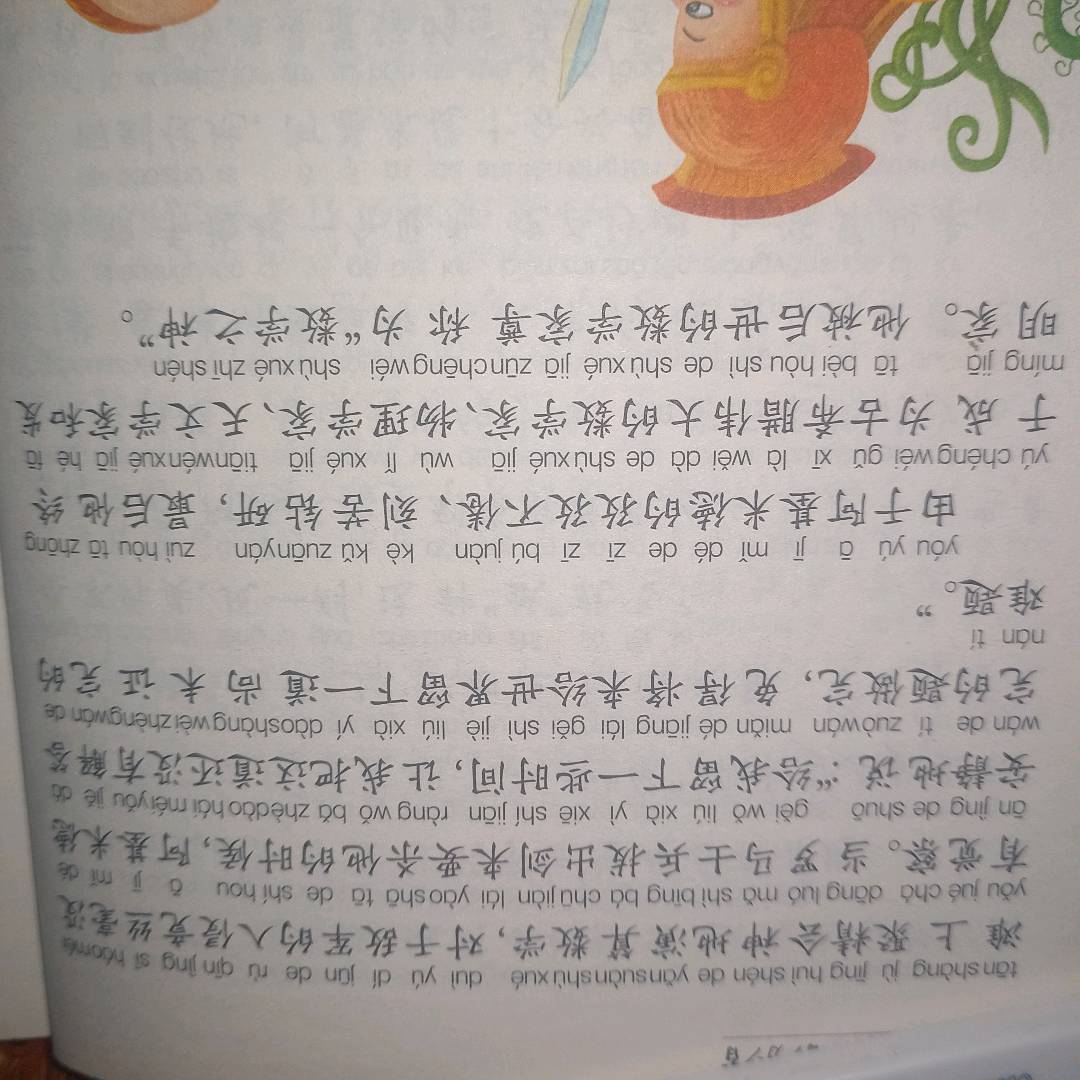 tān shàng jù jīng huì shén de yǎn suàn shù xué duì yú dí jūn de rù qīn jìng sī háo méi
滩上聚精会神地演算数学，对于敌军的入侵竟丝毫没
yǒu jué chá dāng luó mǎ shì bīng bá chū jiàn lái yào shā tā de shí hou ā jī mǐ dé
有觉察。当罗马士兵拔出剑来要杀他的时候，阿基米德
ān jìng de shuō gěi wǒ liú xià yì xiē shí jiān ràng wǒ bǎ zhè dào hái méi yǒu jiě dá
安静地说：“给我留下一些时间，让我把这道还没有解答
wán de tí zuò wán miǎn dé jiāng lái gěi shì jiè liú xià yí dào shàng wèi zhèng wán de
完的题做完，免得将来给世界留下一道尚未证完的
nán tí
难题。”
yóu yú ā jī mǐ dé de zī zī bú juàn kè kǔ zuān yán zuì hòu tā zhōng
由于阿基米德的孜孜不倦、刻苦钻研，最后他终
yú chéng wéi gǔ xī là wěi dà de shù xué jiā wù lǐ xué jiā tiān wén xué jiā hé fā
于成为古希腊伟大的数学家、物理学家、天文学家和发
míng jiā tā bèi hòu shì de shù xué jiā zūn chēng wéi shù xué zhī shén
明家。他被后世的数学家尊称为“数学之神”。